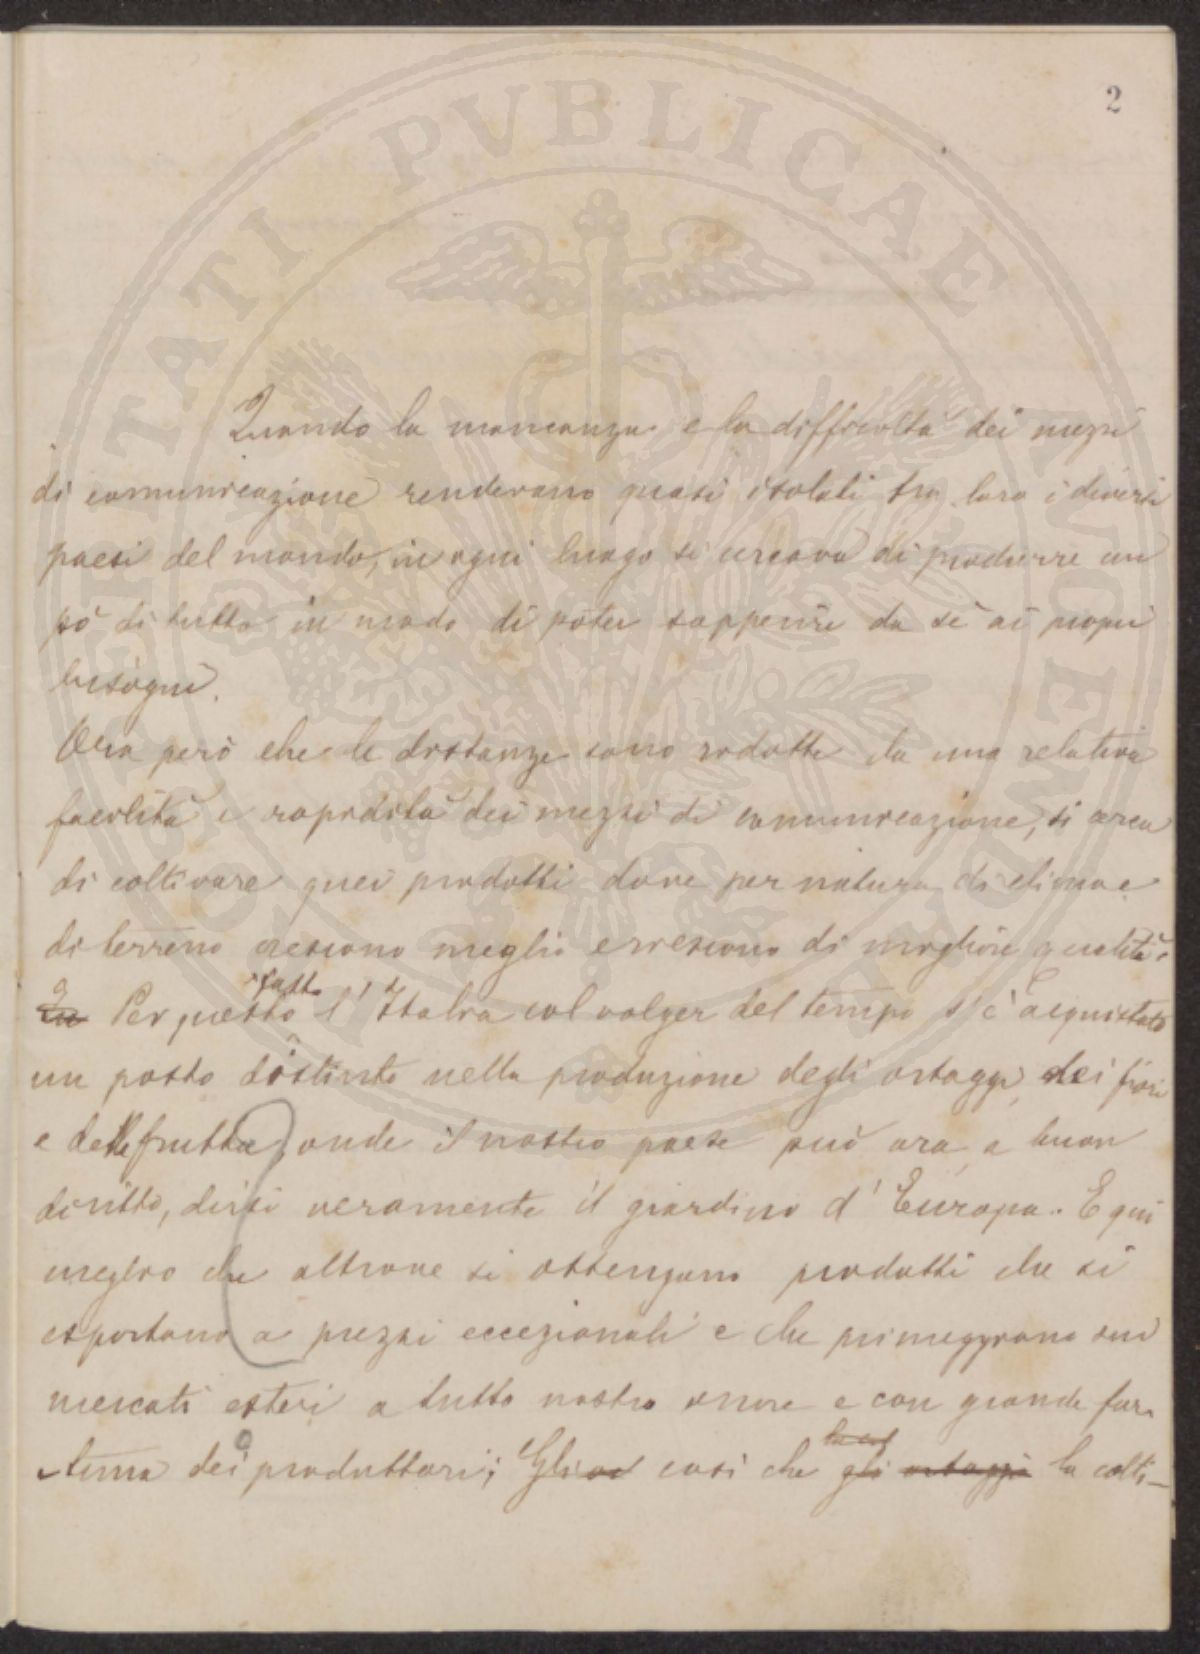 2
Quando la mancanza e la difficoltà dei mezzi
di comunicazione rendevano quasi isolati tra loro i diversi
paesi del mondo, in ogni luogo si cercava di produrre un
pò di tutto in modo di poter sopperire da sè ai propri
bisogni.
Ora però che le distanze sono ridotte da una relativa
facilità e rapidità dei mezzi di comunicazione, si cerca
di coltivare quei prodotti dove per natura di clima e
di terreno crescono meglio e riescono di migliore qualità.
fatto
Per questo l'Italia col volger del tempo s'è acquistato
un posto distinto nella produzione degli ortaggi, dei fiori
e delle frutta, onde il nostro paese può ora, a buon
diritto, dirsi veramente il giardino d'Europa. E qui
meglio che altrove si ottengono prodotti che si
esportano a prezzi eccezionali e che primeggiano sui
mercati esteri a tutto nostro onore e con grande for-
tuna dei produttori; così che gli ortaggi la colti-
SOCIETATI PVBLICAE